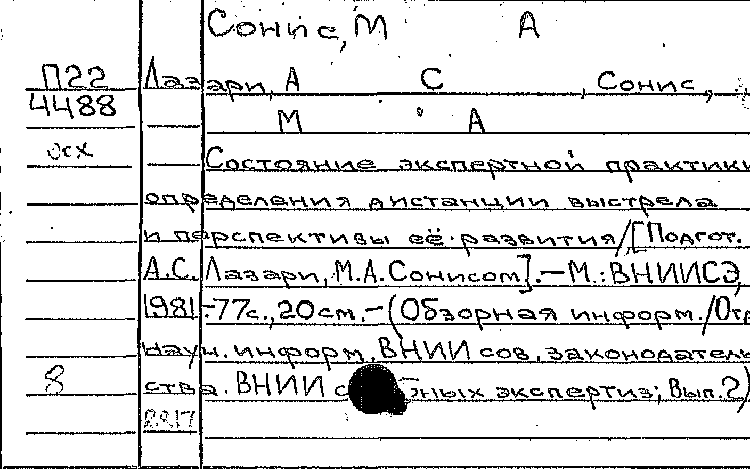 Сонис, М А
П22 Лазари, А С , Сонис,
4488 М А
осх Состояние экспертной практики
определения дистанции выстрела
и перспективы её развития/[Подгот.
А.С. Лазари, М.А. Сонисом].—М.: ВНИИСЭ,
1981.-77с., 20 см.—(Обзорная информ./Отд
науч. информ. ВНИИ сов. законодатель
8 ства. ВНИИ экспертиз; Вып. 2)